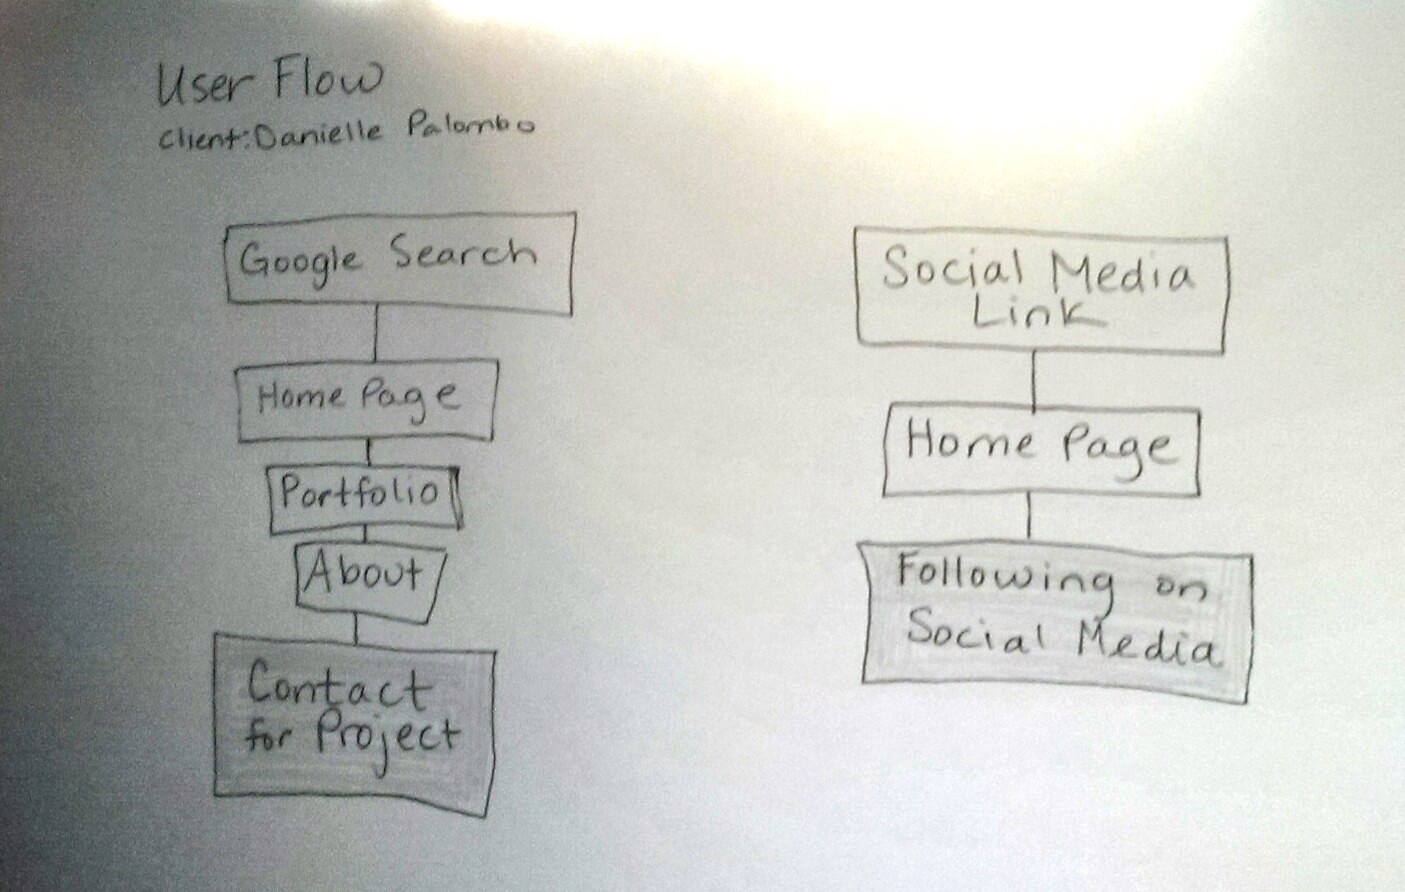 User Flow
Client:Danielle Palombo
Google Search
Home Page
Portfolio
About
Contact
for Project
Social Media
Link
Home Page
Following on
Social Media